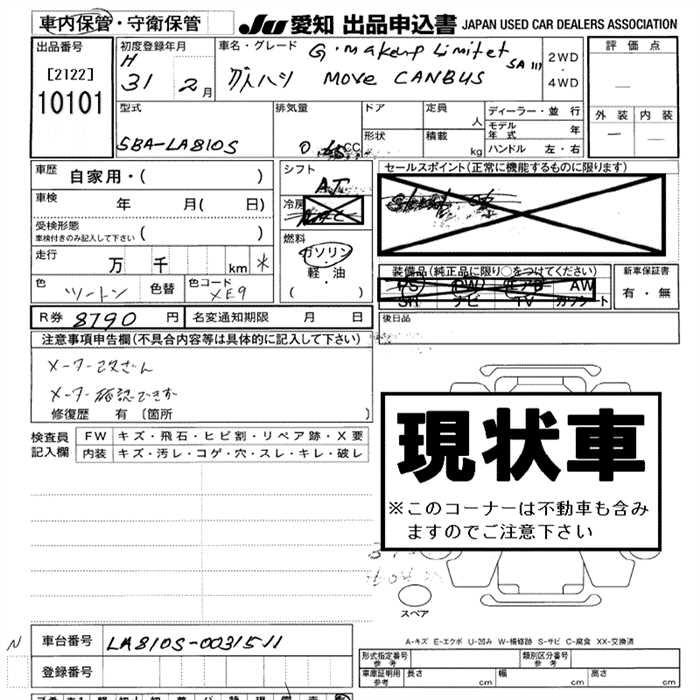 車内保管・守衛保管
JU 愛知 出品申込書 JAPAN USED CAR DEALERS ASSOCIATION
出品番号
[2122]
10101
初度登録年月
H
31 2月
車名・グレード
G・makeup Limitet
SA III
ダイハツ MOVE CANBUS
2WD
・
4WD
評価点
外装 内装
型式
5BA-LA810S
排気量
CC
ドア
形状
定員
人
積載
kg
ディーラー・並行
モデル年式 年
ハンドル 左・右
車歴
自家用・( )
車検
年 月( 日)
受検形態
車検付きのみ記入して下さい ( )
走行
万 千 km *
色 ツートン 色替 色コード XE9
シフト
AT
冷房
燃料
ガソリン
・
軽・油
( )
セールスポイント(正常に機能するものに限ります)
装備品(純正品に限り○をつけてください)
PS PW エアB AW
SR ナビ TV カワシート
新車保証書
有・無
後日品
R券 8790 円 名変通知期限 月 日
注意事項申告欄(不具合内容等は具体的に記入して下さい)
メーター改ざん
メーター確認できず
修復歴 有 〔箇所 〕
検査員
記入欄
FW キズ・飛石・ヒビ割・リペア跡・X要
内装 キズ・汚レ・コゲ・穴・スレ・キレ・破レ
現状車
※このコーナーは不動車も含み
ますのでご注意下さい
スペア
A-キズ E-エクボ U-凹み W-補修跡 S-サビ C-腐食 XX-交換済
N
車台番号 LA810S-0031511
登録番号
形式指定番号
参考
類別区分番号
参考
車庫証明用
参考
長さ 幅 高さ
cm cm cm